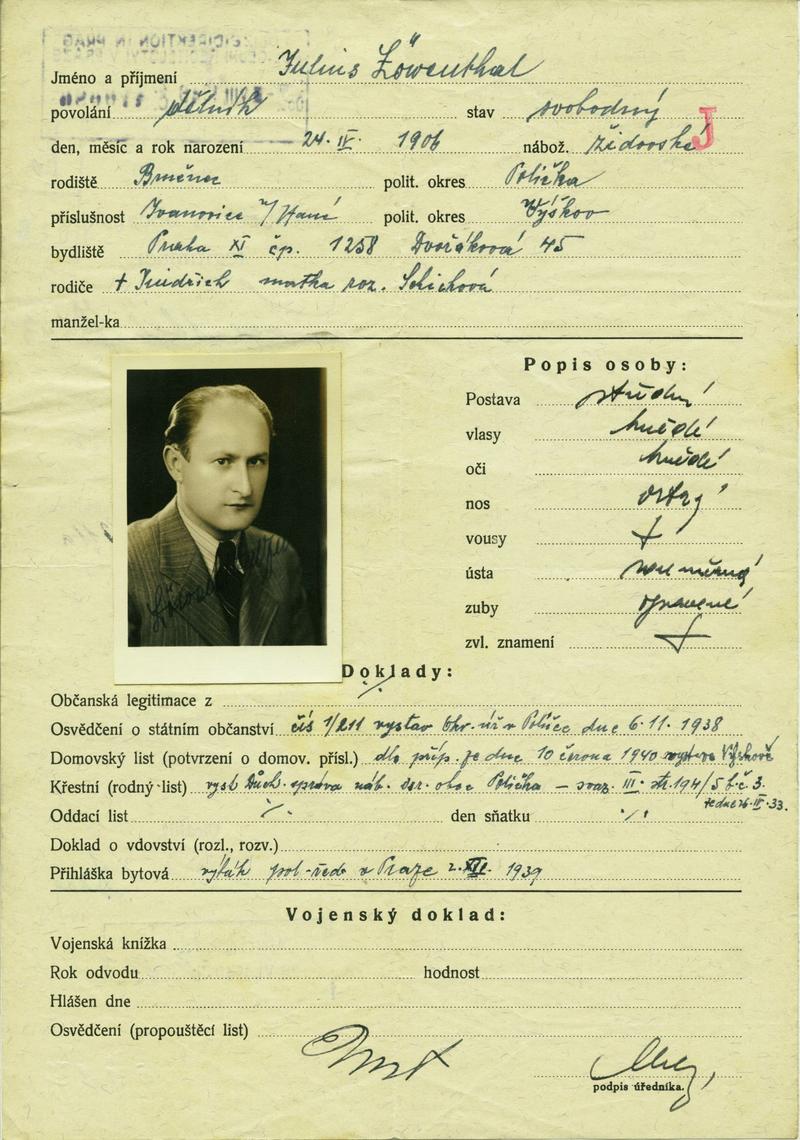 DIREKTION IN PRAG
Jméno a příjmení Julius Löwenthal
povolání dělník stav svobodný
den, měsíc a rok narození 24. IV. 1906 nábož. židovské J
rodiště Brněnec polit. okres Polička
příslušnost Ivanovice n/Hané polit. okres Výškov
bydliště Praha XI čp. 1258 Dvořákova 45
rodiče † Jindřich matka roz. Schicková
manžel-ka
Popis osoby:
Postava střední
vlasy hnědé
oči hnědé
nos ostrý
vousy
ústa souměrná
zuby opravené
zvl. znamení
Doklady:
Občanská legitimace z
Osvědčení o státním občanství čís 1/211 vystav Okr. úř v Poličce dne 6. 11. 1938
Domovský list (potvrzení o domov. přísl.) dle příp. ze dne 10 června 1940 Výškově
Křestní (rodný list) vyst. Duch. správa náb. isr. obce Polička – svaz. III. str. 194/5 b.č 3.
ze dne 26. IV. 33.
Oddací list ·/. den sňatku ·/.
Doklad o vdovství (rozl., rozv.)
Přihláška bytová výtah pol. řed. v Praze 2. XII. 1939
Vojenský doklad:
Vojenská knížka
Rok odvodu hodnost
Hlášen dne
Osvědčení (propouštěcí list)
podpis úředníka.